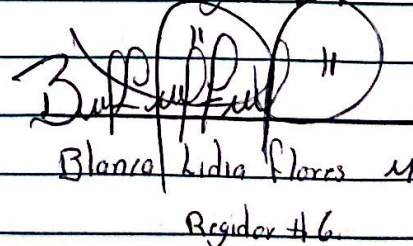 Blanca Lidia Flores M
Regidor #6